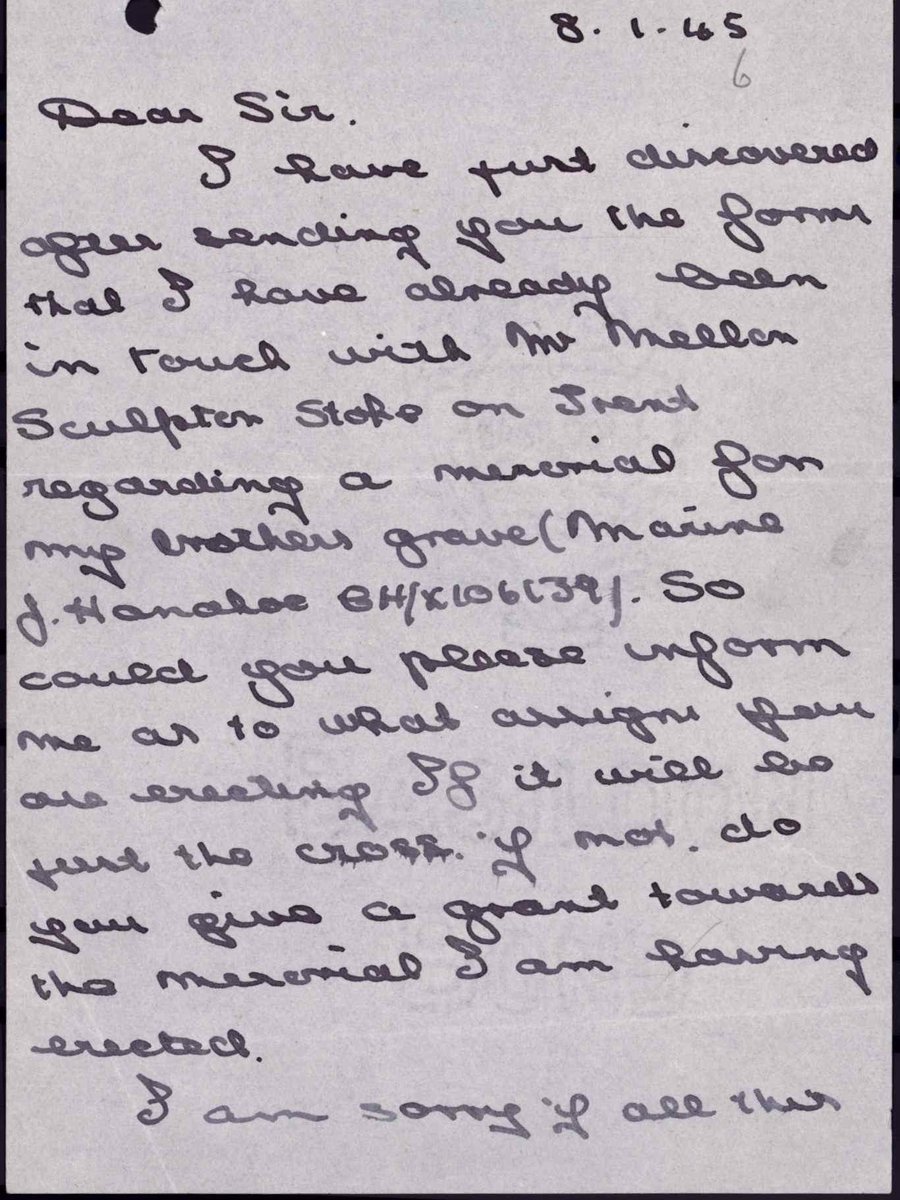 8. 1. 45
6
Dear Sir.
I have just discovered
after sending you the forms
that I have already been
in touch with Mr Mellon
Sculptor Stoke on Trent
regarding a memorial for
my brothers grave (Marine
J. Hanahoe CH/X106139). So
could you please inform
me as to what you
are erecting If it will be
just the cross. if not. do
you give a grant towards
the memorial I am having
erected.
I am sorry if all this